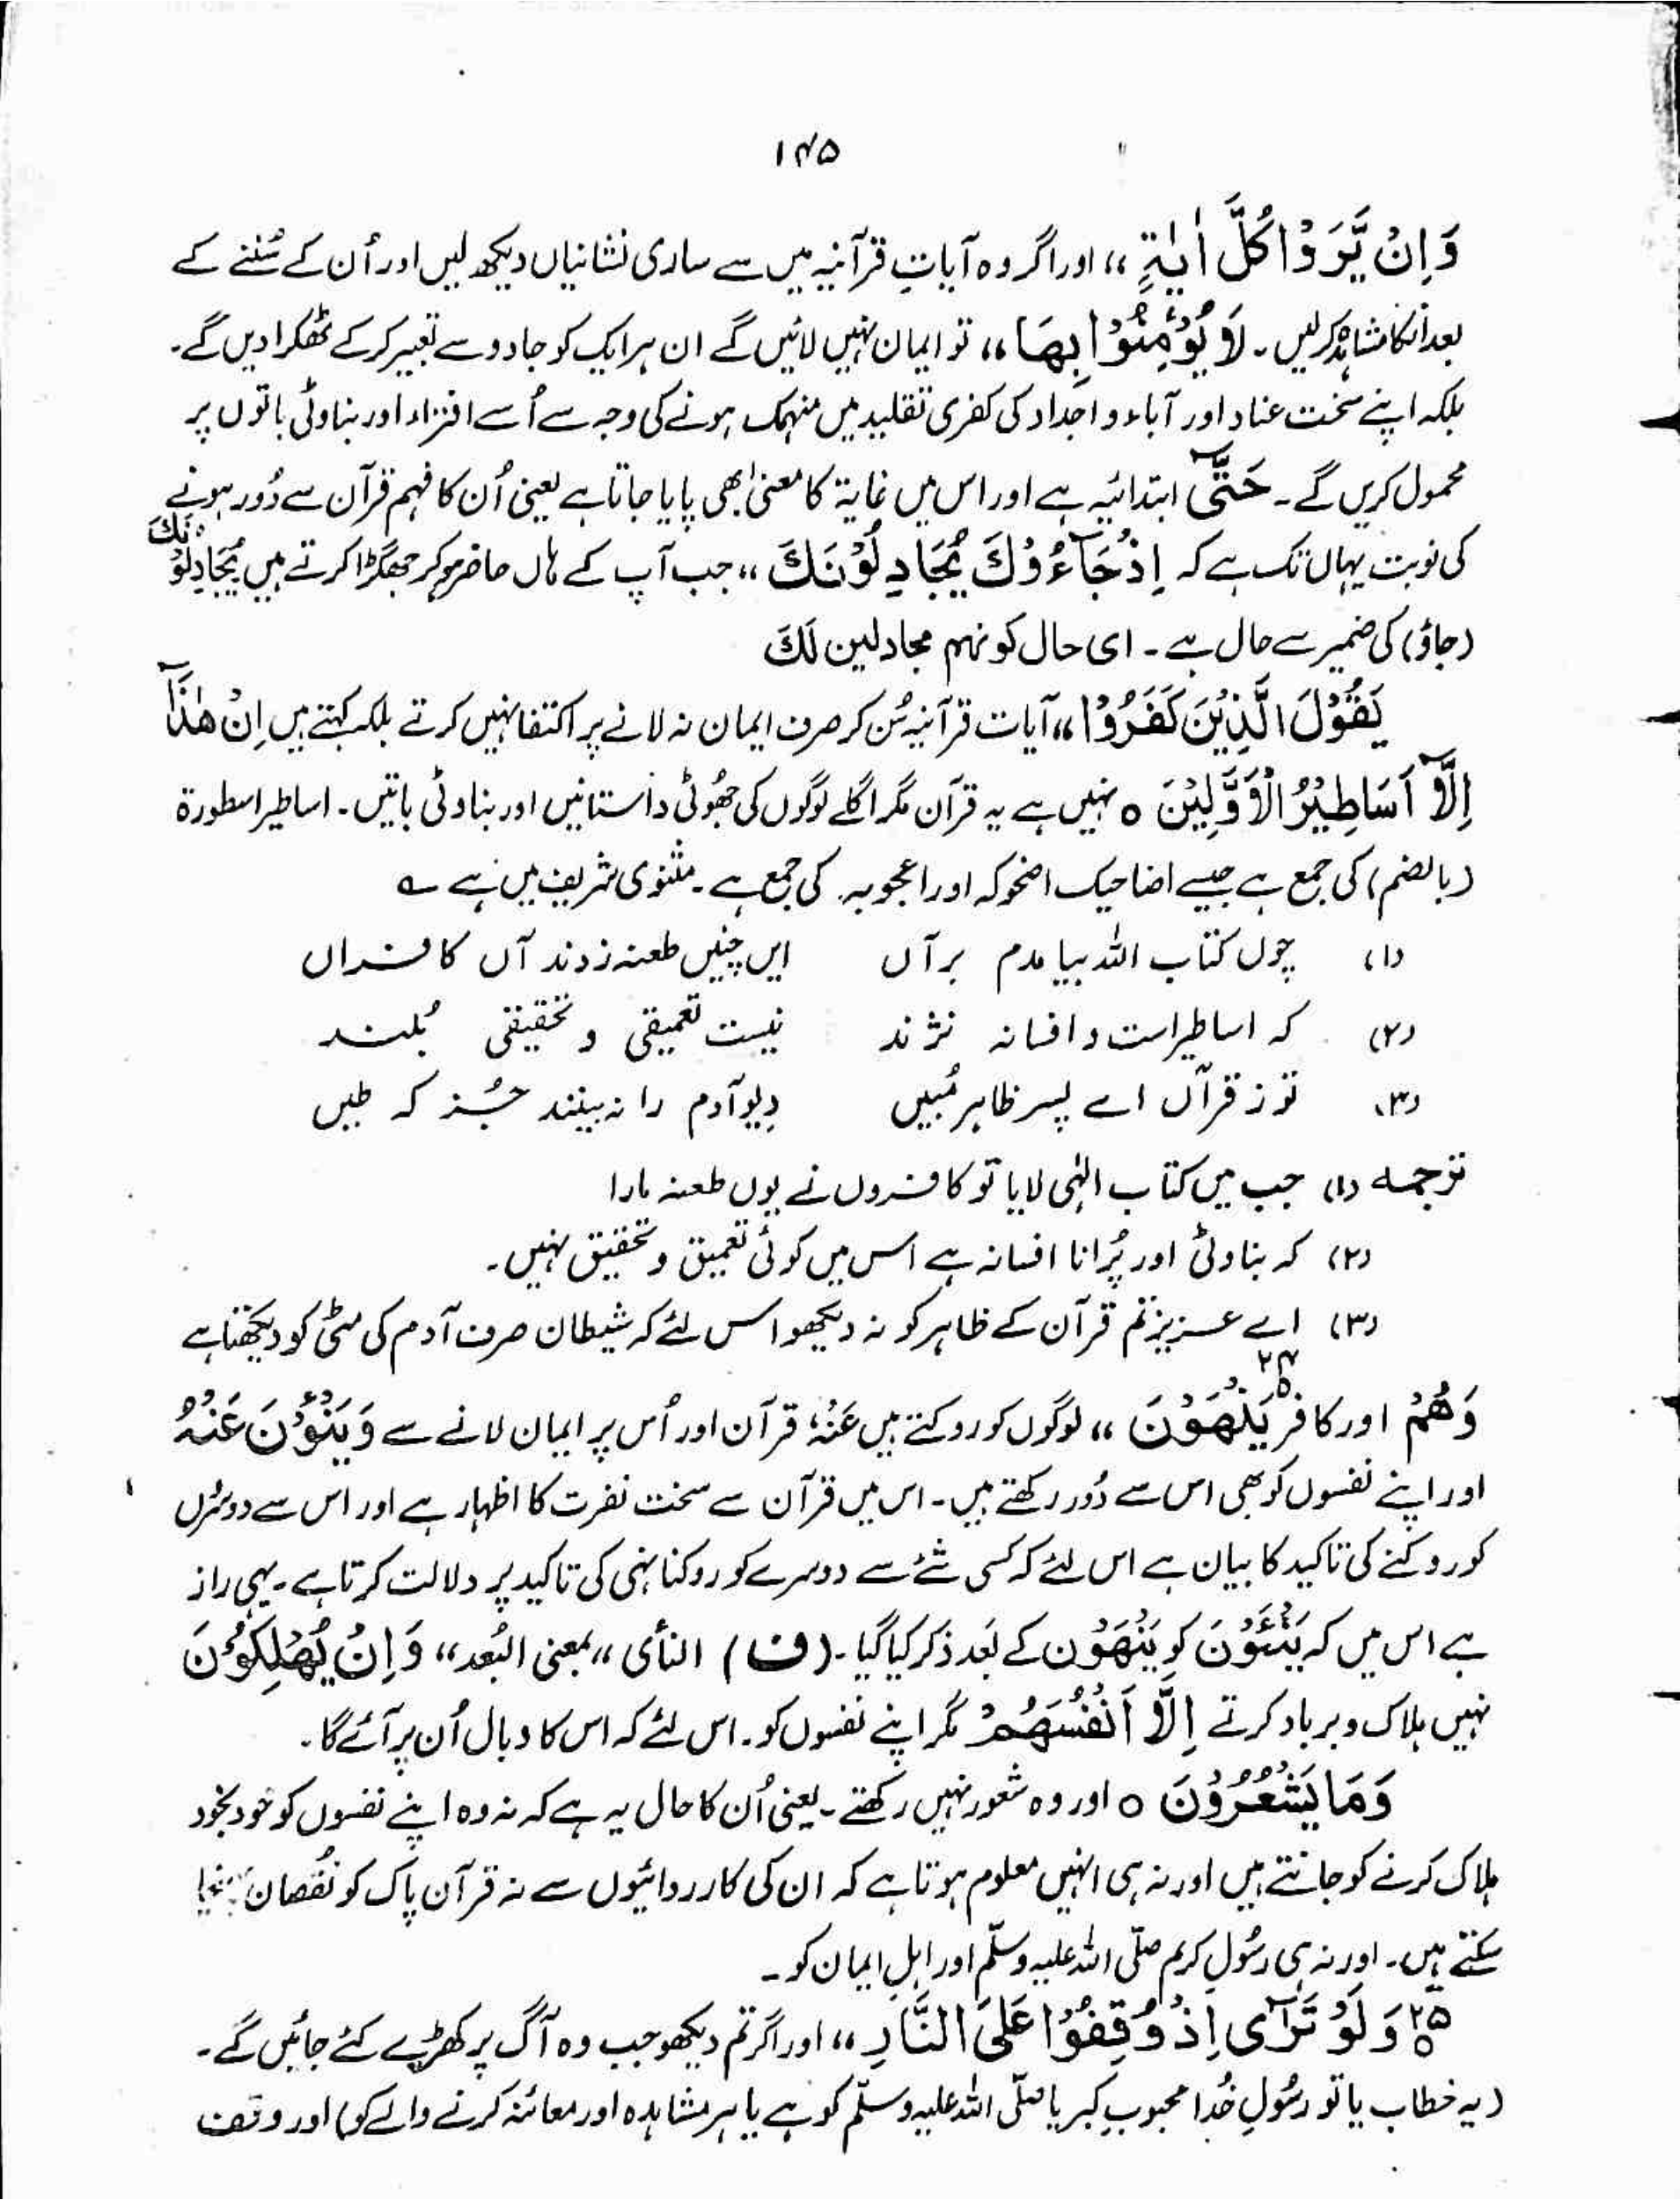 ۱۴۵
وَاِنْ یَّرَوْا کُلَّ اٰیَۃٍ ،، اور اگر وہ آیاتِ قرآنیہ میں سے ساری نشانیاں دیکھ لیں اور اُن کے سُننے کے
بعد انکا مشاہدہ کرلیں۔ لَا یُؤْمِنُوْا بِھَا ،، تو ایمان نہیں لائیں گے ان ہر ایک کو جادو سے تعبیر کر کے ٹھکرا دیں گے۔
بلکہ اپنے سخت عناد اور آباء و اجداد کی کفری تقلید میں منہمک ہونے کی وجہ سے اُسے افتراء اور بناوٹی باتوں پر
محمول کریں گے۔ حَتّٰی ابتدائیہ ہے اور اس میں غایۃ کا معنیٰ بھی پایا جاتا ہے یعنی اُن کا فہم قرآن سے دُور ہونے
کی نوبت یہاں تک ہے کہ اِذْ جَآءُوْكَ یُجَادِلُوْنَكَ ،، جب آپ کے ہاں حاضر ہو کر جھگڑا کرتے ہیں یُجَادِلُوْنَكَ
(جاؤ) کی ضمیر سے حال ہے۔ ای حال کونہم مجادلین لَكَ
یَقُوْلَ الَّذِیْنَ کَفَرُوْا ،، آیات قرآنیہ سُن کر صرف ایمان نہ لانے پر اکتفا نہیں کرتے بلکہ کہتے ہیں اِنْ ھٰذَآ
اِلَّآ اَسَاطِیْرُ الْاَوَّلِیْنَ ○ نہیں ہے یہ قرآن مگر اگلے لوگوں کی جھُوٹی داستانیں اور بناوٹی باتیں۔ اساطیر اسطورۃ
(بالضم) کی جمع ہے جیسے اضاحیک اضحوکہ اور اعجوبہ کی جمع ہے۔ مثنوی شریف میں ہے ؎
(۱) چوں کتاب اللہ بیامدم برآں ایں چنیں طعنہ زدند آں کافراں
(۲) کہ اساطیر است و افسانہ نژند نیست تعمیقی و تحقیقی بُلند
(۳) تو ز قرآں اے پسر ظاہر مُبیں دِیو آدم را نہ بینند جُز کہ طیں
ترجمہ (۱) جب میں کتاب الٰہی لایا تو کافروں نے یوں طعنہ مارا
(۲) کہ بناوٹی اور پُرانا افسانہ ہے اس میں کوئی تعمیق و تحقیق نہیں۔
(۳) اے عزیز تم قرآن کے ظاہر کو نہ دیکھو اس لئے کہ شیطان صرف آدم کی مٹی کو دیکھتا ہے
۲۴
وَھُمْ اور کافر یَنْھَوْنَ ،، لوگوں کو روکتے ہیں عَنْہُ قرآن اور اُس پر ایمان لانے سے وَیَنْئَوْنَ عَنْہُ
اور اپنے نفسوں کو بھی اس سے دُور رکھتے ہیں۔ اس میں قرآن سے سخت نفرت کا اظہار ہے اور اس سے دوسروں
کو روکنے کی تاکید کا بیان ہے اس لئے کہ کسی شئے سے دوسرے کو روکنا نہی کی تاکید پر دلالت کرتا ہے۔ یہی راز
ہے اس میں کہ یَنْئَوْنَ کو یَنْھَوْن کے بَعد ذکر کیا گیا۔ (ف) النأی ،، بمعنی البُعد ،، وَاِنْ یُّھْلِکُوْنَ
نہیں ہلاک و برباد کرتے اِلَّا اَنْفُسَھُمْ مگر اپنے نفسوں کو۔ اس لئے کہ اس کا وبال اُن پر آئے گا۔
وَمَا یَشْعُرُوْنَ ○ اور وہ شعور نہیں رکھتے۔ یعنی اُن کا حال یہ ہے کہ نہ وہ اپنے نفسوں کو خود بخود
ہلاک کرنے کو جانتے ہیں اور نہ ہی انہیں معلوم ہوتا ہے کہ ان کی کارروائیوں سے نہ قرآن پاک کو نُقصان پہنچا
سکتے ہیں۔ اور نہ ہی رسُولِ کریم صلّی اللہ علیہ وسلّم اور اہلِ ایمان کو۔
۲۵ وَلَوْ تَرٰٓی اِذْ وُقِفُوْا عَلَی النَّارِ ،، اور اگر تم دیکھو جب وہ آگ پر کھڑے کئے جائیں گے۔
(یہ خطاب یا تو رسُولِ خُدا محبوبِ کبریا صلّی اللہ علیہ وسلّم کو ہے یا ہر مشاہدہ اور معائنہ کرنے والے کو) اور وقف